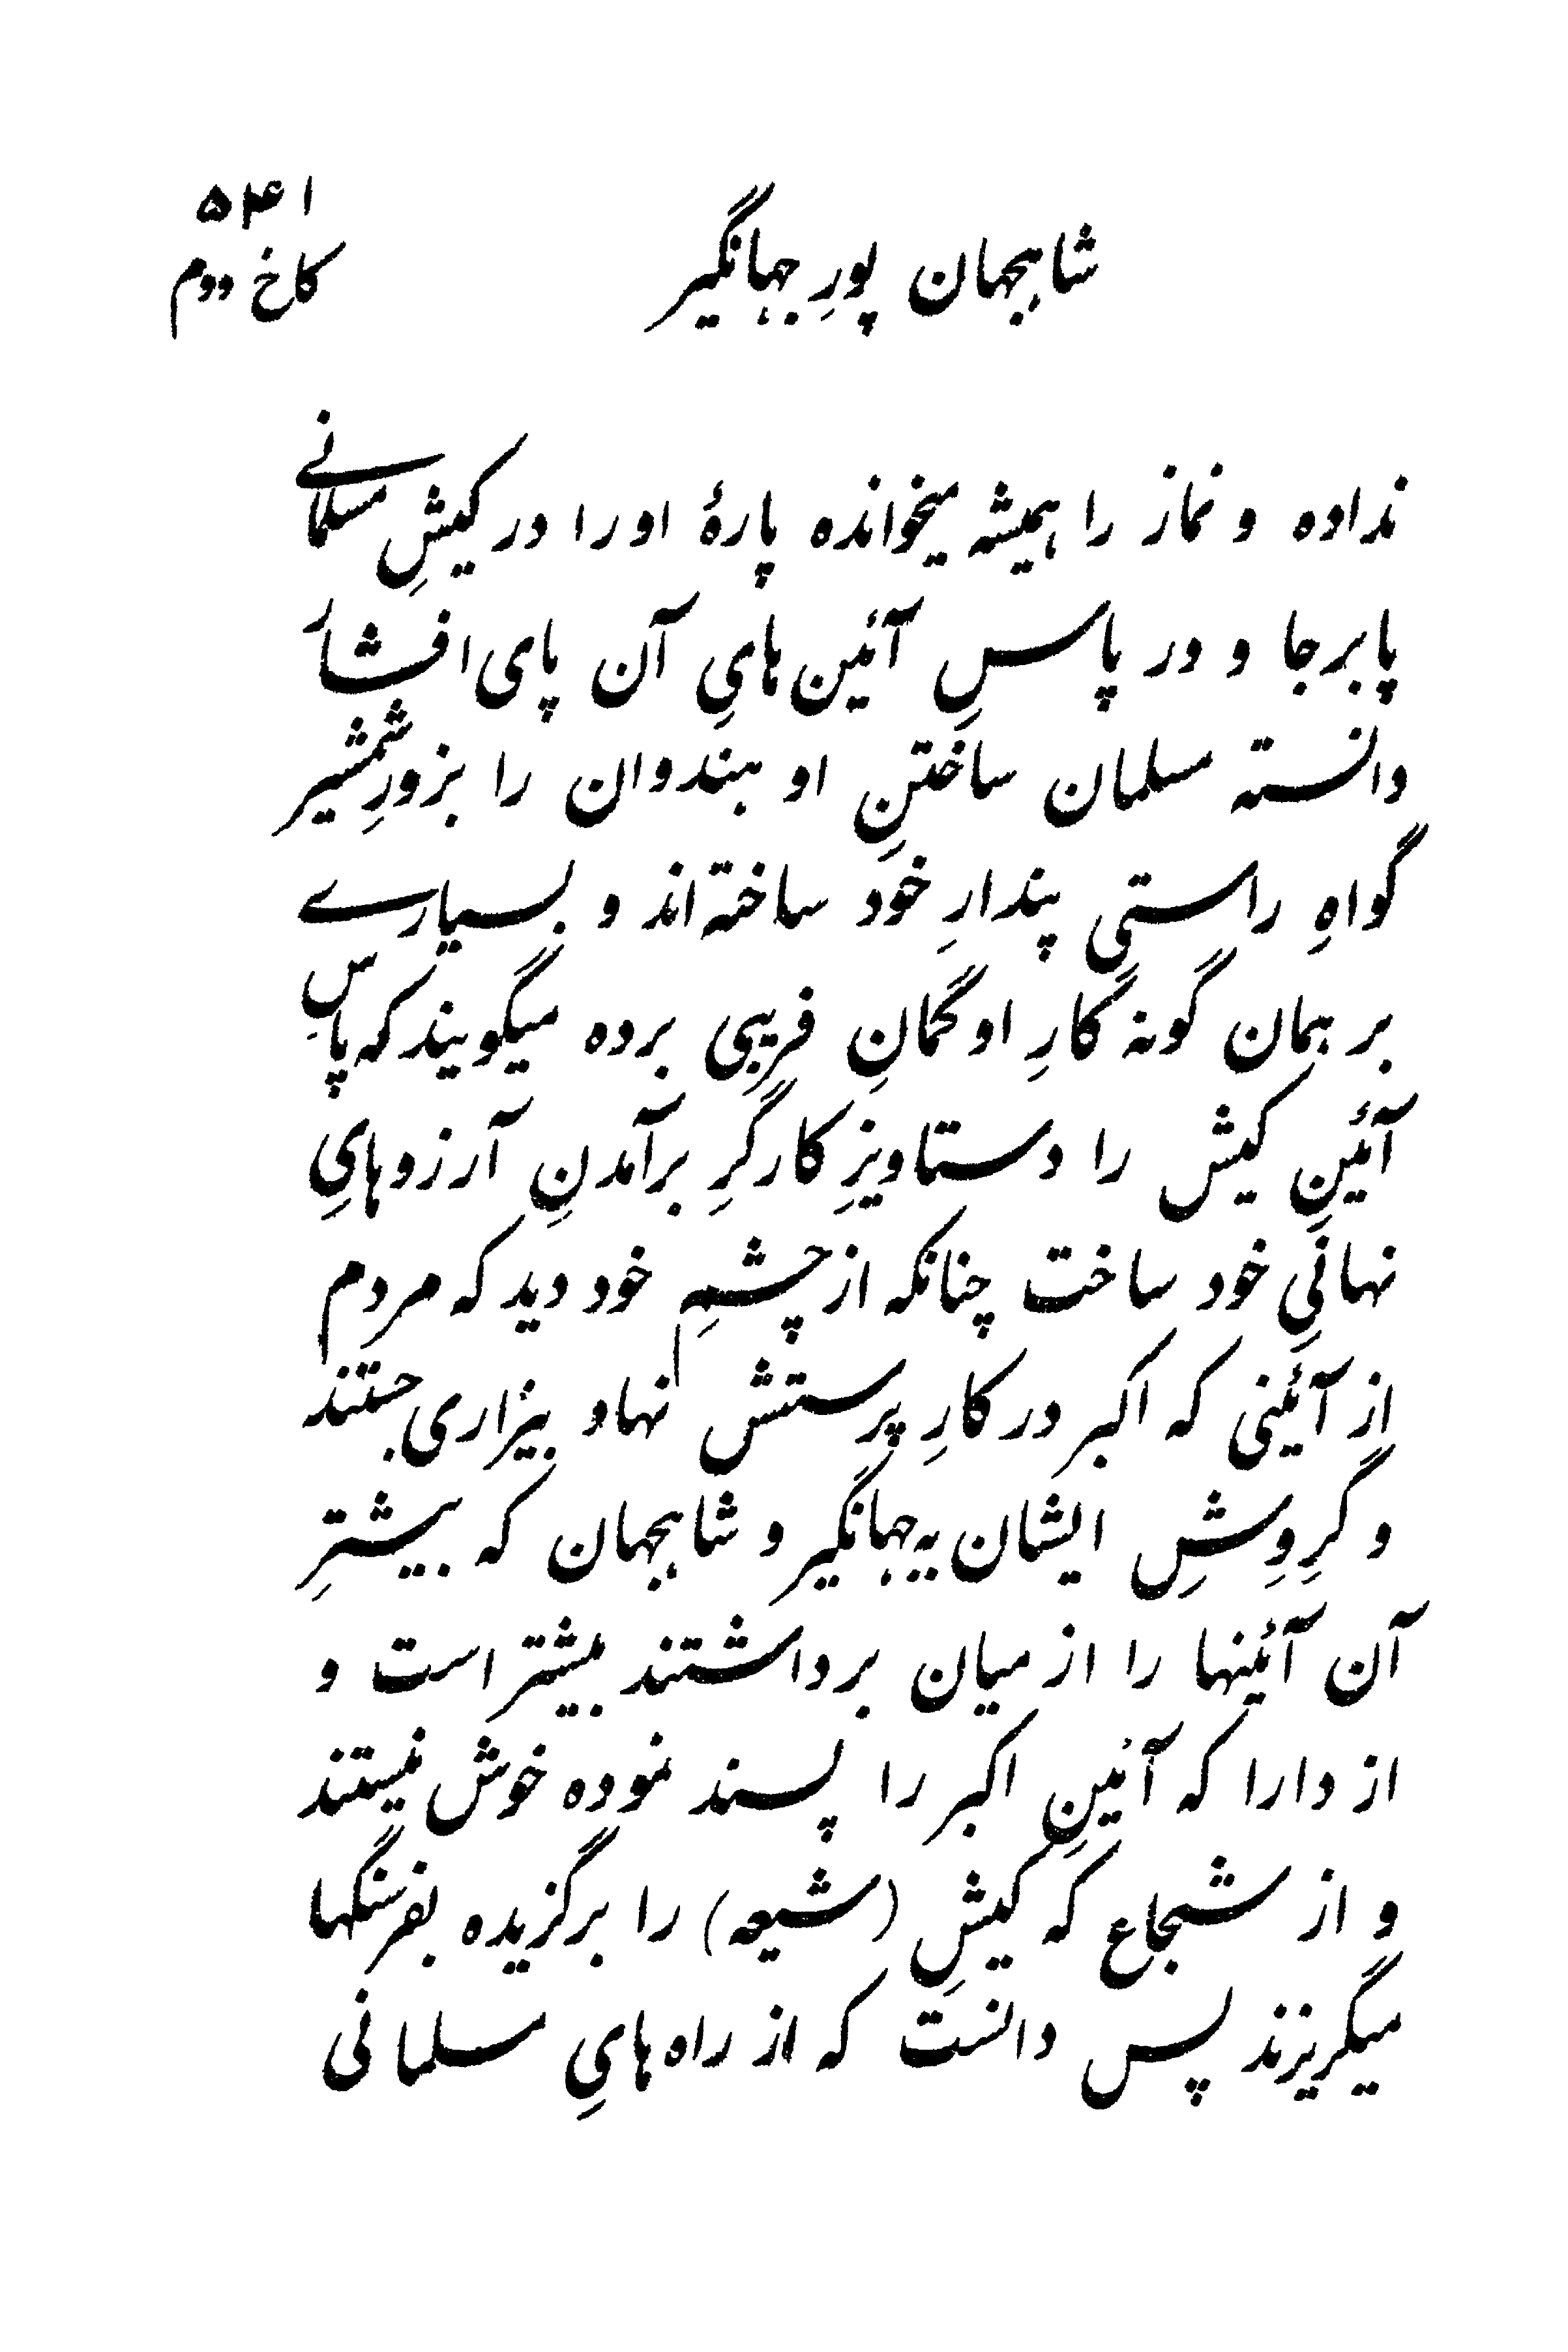 ۵۴۱
شاهجهان پورِ جهانگیر
کاخ دوم
نداده و نماز را همیشه میخوانده پارۀ او را در کیشِ مسلمانے
پابرجا و در پاسِ آئین‌هایِ آن پای افشار
دانسته مسلمان ساختنِ او هندوان را بزورِ شمشیر
گواهِ راستیِ پندارِ خود ساخته‌اند و بسیارے
بر همان گونه کارِ او گمانِ فریبی برده میگویند که پاسِ
آئینِ کیش را دستاویزِ کارگرِ برآمدنِ آرزوهایِ
نهانیِ خود ساخت چنانکه از چشمِ خود دید که مردم
از آئینی که اکبر در کارِ پرستش نهاد بیزاری جستند
و گرِوِشِ ایشان به جهانگیر و شاهجهان که بیشترِ
آن آئینها را از میان برداشتند بیشتر است و
از دارا که آئینِ اکبر را پسند نموده خوش نیستند
و از شجاع که کیشِ (شیعه) را برگزیده بفرسنگها
میگریزند پس دانست که از راه‌هایِ مسلمانی